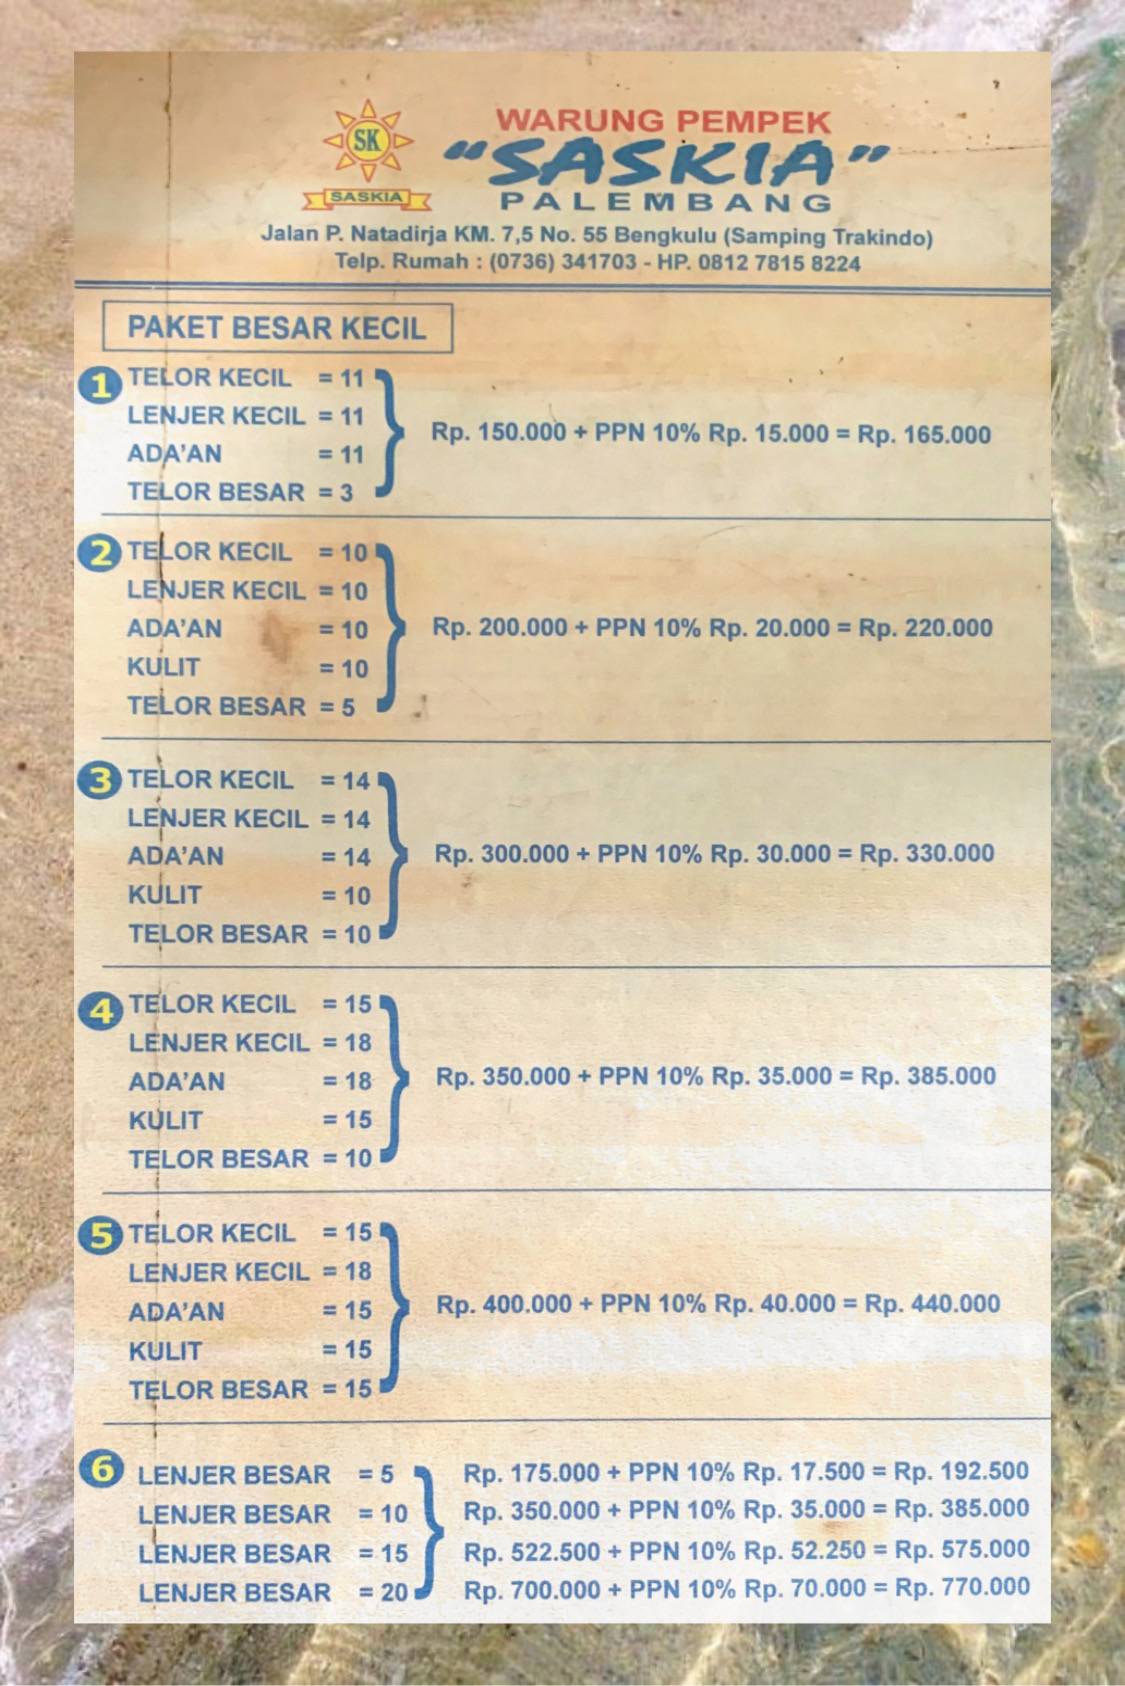 SK
SASKIA
WARUNG PEMPEK
"SASKIA"
PALEMBANG
Jalan P. Natadirja KM. 7,5 No. 55 Bengkulu (Samping Trakindo)
Telp. Rumah : (0736) 341703 - HP. 0812 7815 8224
PAKET BESAR KECIL
1 TELOR KECIL = 11
LENJER KECIL = 11
Rp. 150.000 + PPN 10% Rp. 15.000 = Rp. 165.000
ADA'AN = 11
TELOR BESAR = 3
2 TELOR KECIL = 10
LENJER KECIL = 10
ADA'AN = 10 Rp. 200.000 + PPN 10% Rp. 20.000 = Rp. 220.000
KULIT = 10
TELOR BESAR = 5
3 TELOR KECIL = 14
LENJER KECIL = 14
ADA'AN = 14 Rp. 300.000 + PPN 10% Rp. 30.000 = Rp. 330.000
KULIT = 10
TELOR BESAR = 10
4 TELOR KECIL = 15
LENJER KECIL = 18
ADA'AN = 18 Rp. 350.000 + PPN 10% Rp. 35.000 = Rp. 385.000
KULIT = 15
TELOR BESAR = 10
5 TELOR KECIL = 15
LENJER KECIL = 18
ADA'AN = 15 Rp. 400.000 + PPN 10% Rp. 40.000 = Rp. 440.000
KULIT = 15
TELOR BESAR = 15
6 LENJER BESAR = 5 Rp. 175.000 + PPN 10% Rp. 17.500 = Rp. 192.500
LENJER BESAR = 10 Rp. 350.000 + PPN 10% Rp. 35.000 = Rp. 385.000
LENJER BESAR = 15 Rp. 522.500 + PPN 10% Rp. 52.250 = Rp. 575.000
LENJER BESAR = 20 Rp. 700.000 + PPN 10% Rp. 70.000 = Rp. 770.000